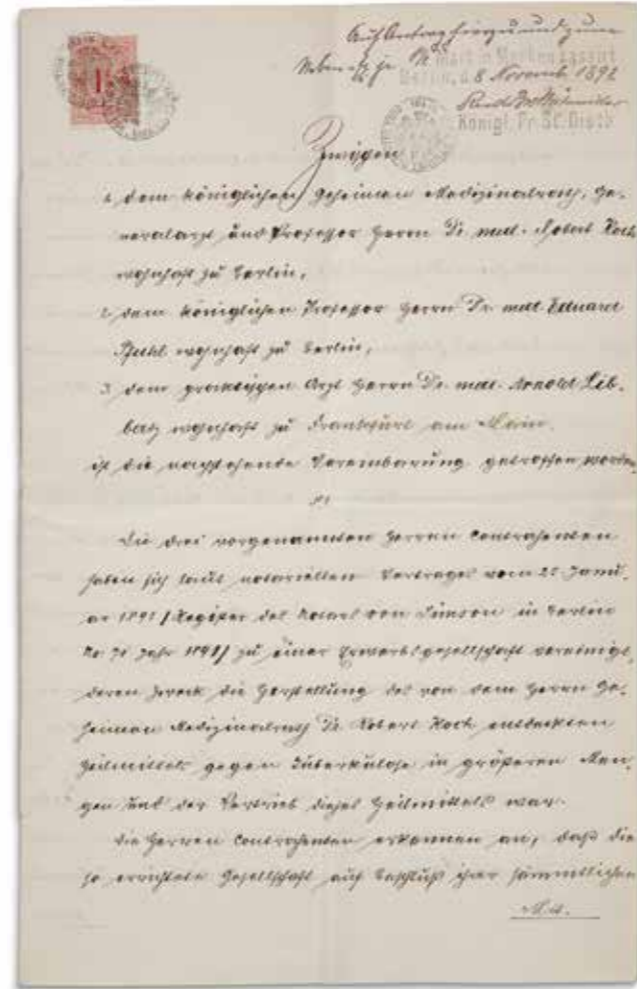 Auf Antrag hierzu und zum
Neben ex. je Mark in Marken cassirt
Berlin, d. 8 Novemb 1892
Königl. Pr. St. Distr
1
Zwischen
1, dem königlichen Geheimen Medizinalrath, Ge-
neralarzt und Professor Herrn Dr. med. Robert Koch
wohnhaft zu Berlin,
2, dem königlichen Professor Herrn Dr. med. Eduard
Pfuhl wohnhaft zu Berlin,
3, dem praktischen Arzt Herrn Dr. med. Arnold Lib-
bertz wohnhaft zu Frankfurt am Main.
ist die nachstehende Vereinbarung getroffen worden.
§1
Die drei vorgenannten Herren Contrahenten
haben sich laut notariellen Vertrages vom 25 Janu-
ar 1891 /Register des Notars von Simson in Berlin
No. 71 Jahr 1891/ zu einer Erwerbsgesellschaft vereinigt,
deren Zweck die Herstellung des von dem Herrn Ge-
heimen Medizinalrath Dr. Robert Koch entdeckten
Heilmittels gegen Tuberkulose in größeren Men-
gen und der Vertrieb dieses Heilmittels war.
Die Herren Contrahenten erkennen an, daß die
so errichtete Gesellschaft auf Beschluß ihrer sämmtlichen
Mit-